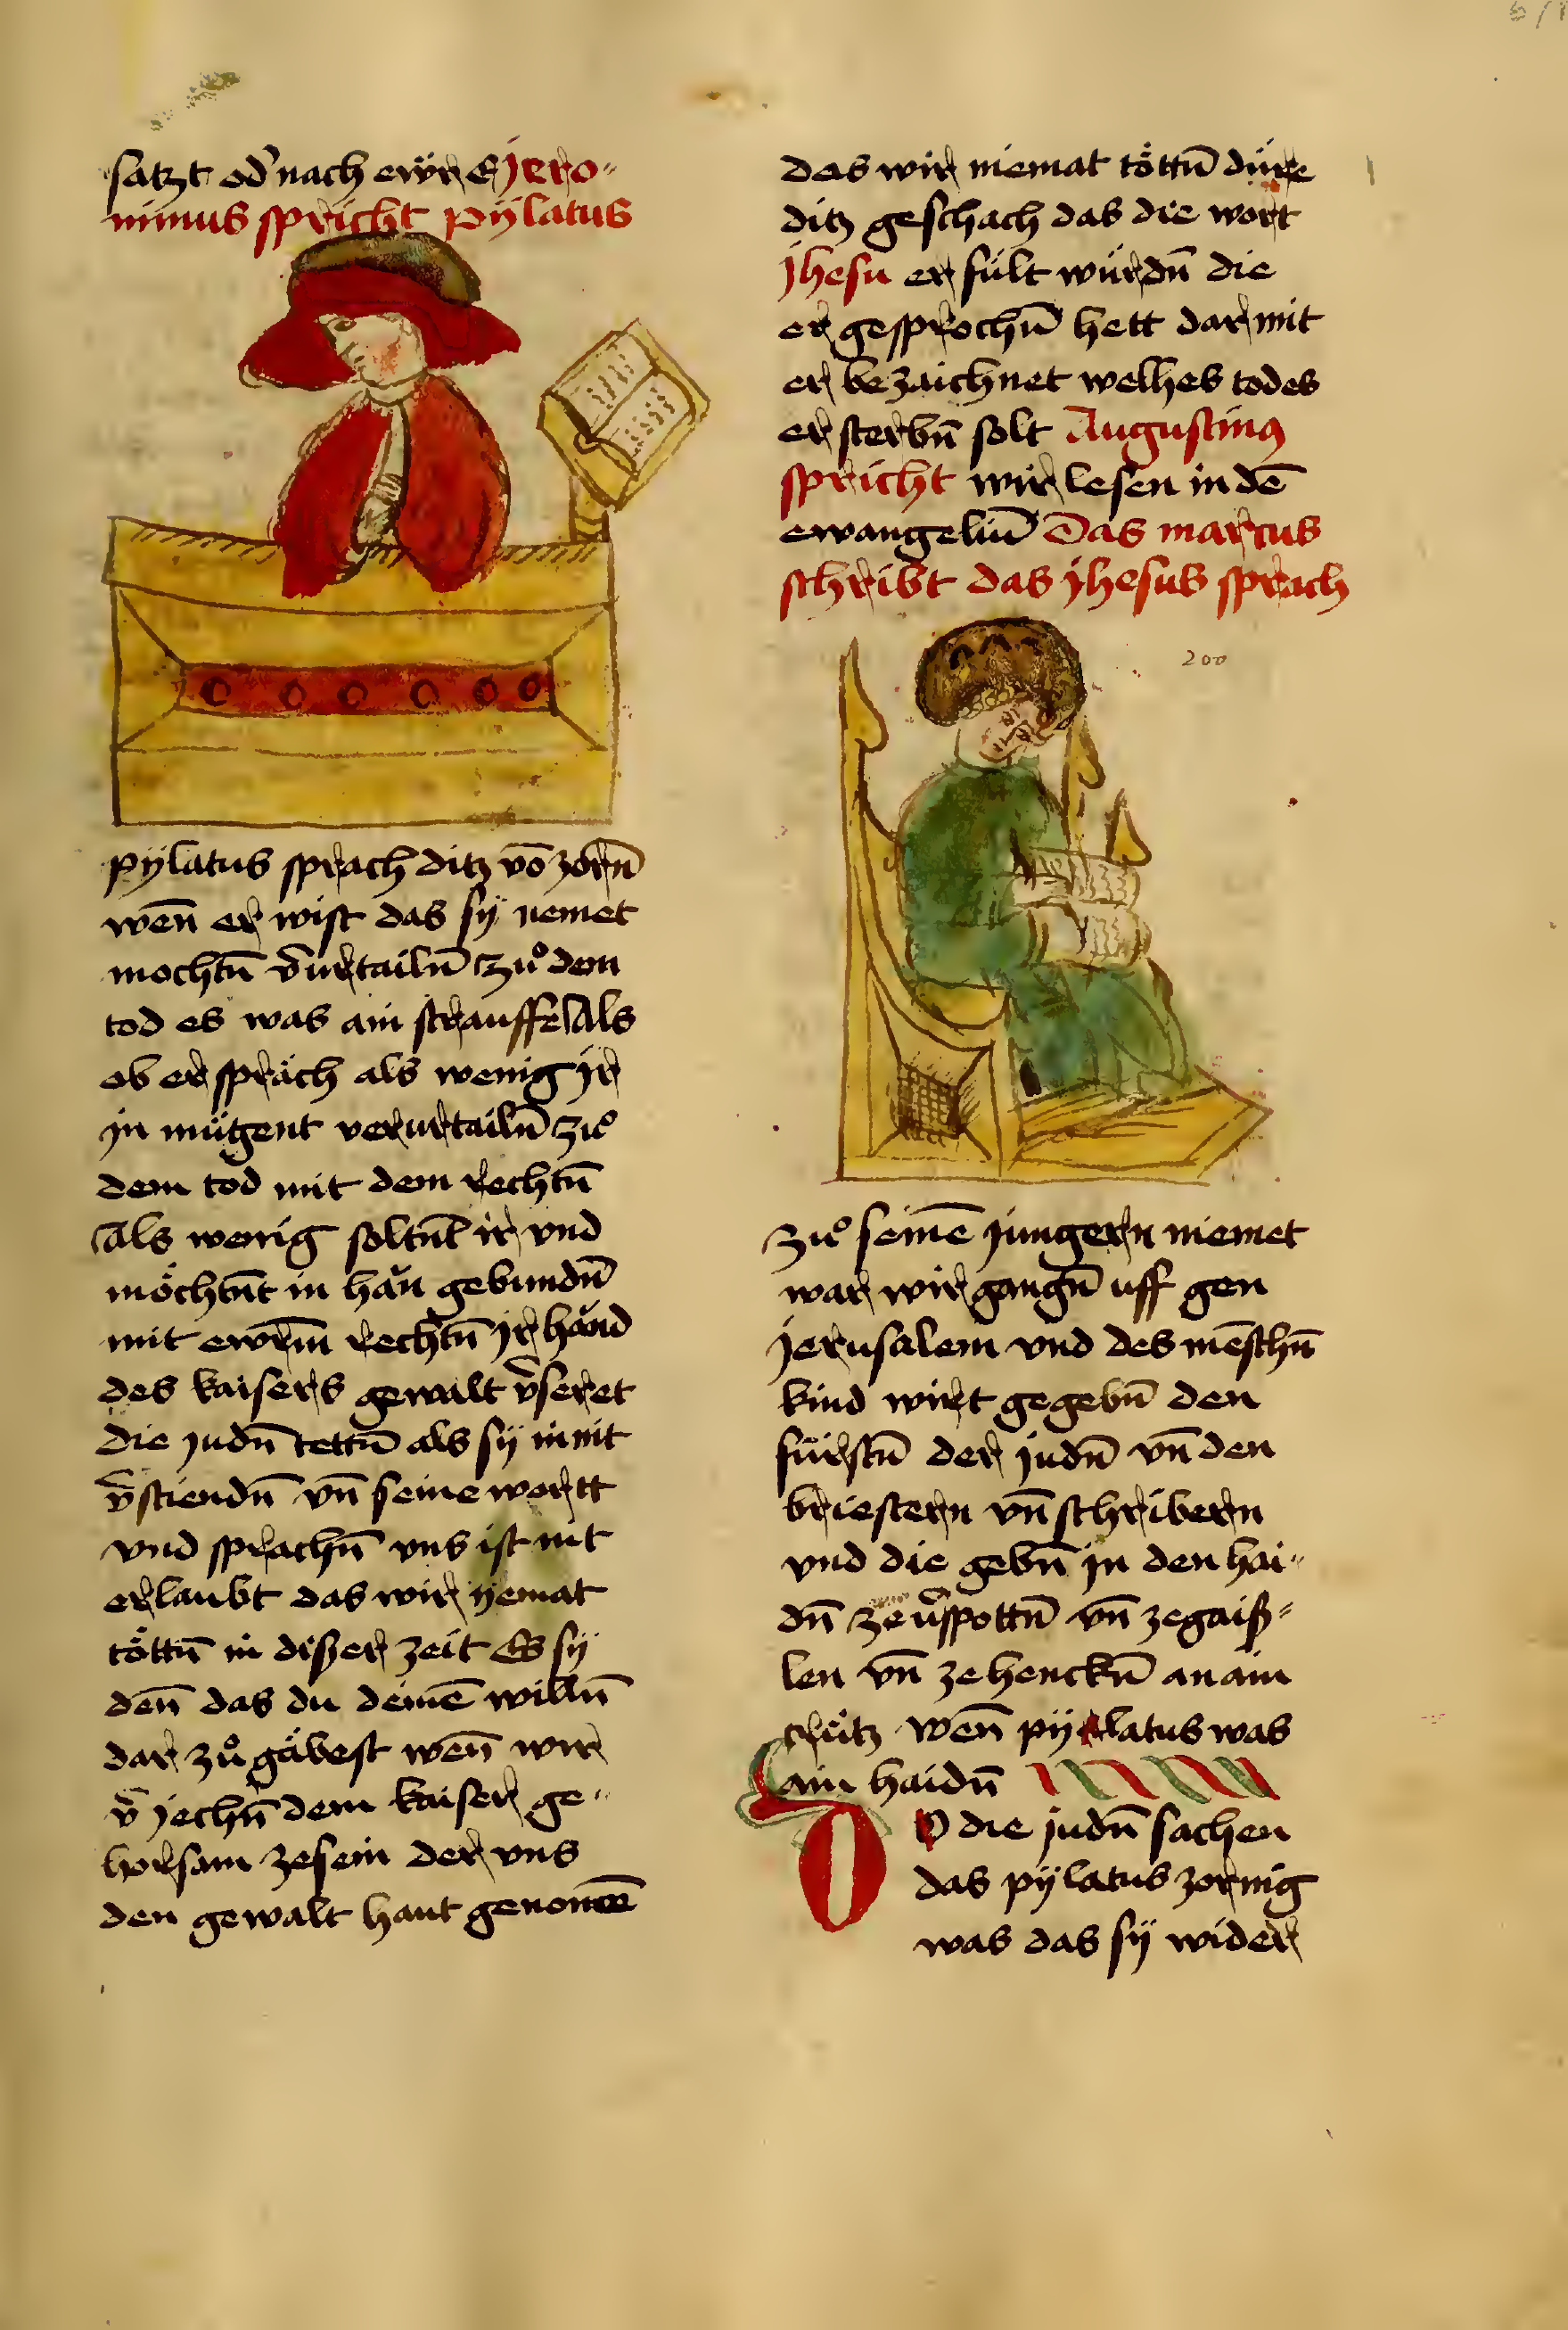 satzt od̕ nach ewr̈ e jero-
nimus spricht pÿlatus
pÿlatus sprach ditz vō zorn̄
wen̄ er wist das sÿ nemet
mochtn̄ v̄urtailn̄ zuͦ dem
tod es was ain strauffe Als
ob er spräch als wenig jr
jn mügent verurtailn̄ zuͦ
dem tod mit dem rechtn̄
Als wenig soltn̄t ir vnd
möchtn̄t in hăn gebundn̄
mit ewrm̄ rechtn̄ jr hănd
des kaisers gewalt v̄seret
die judn̄ tettn̄ als sÿ in nit
v̄stiendn̄ vn̄ seine wortt
vnd sprachn̄ vns ist nit
erlaubt das wir yemat
töttn̄ in diser zeit Es sÿ
den̄ das du deinē willn̄
dar zuͦ gäbest wen̄ wir
v̄jechn̄ dem kaiser ge-
horsam zesein der vns
den gewalt haut genomē
das wir niemat töttn̄ düre
ditz geschach das die wort
jhesu erfült würdn̄ die
er gesprochn̄ hett darmit
er bezaichnet welhes todes
er sterbn̄ solt Augustinꝰ
spricht wir lesen in dē
ewangeliū Das marcus
schribt das jhesus sprach
200
zuͦ seinē jungern niemet
war wir gangn̄ uff gen
jerusalem vnd des mēschn̄
kind wirt gegebn̄ den
fürstn̄ der judn̄ vn̄ den
briestern vn̄ schribern
vnd die gebn̄ jn den hai-
dn̄ ze v̄spottn̄ vn̄ zegaiß-
len vn̄ zehenckn̄ an ain
crütz wen̄ pÿlatus was
ain haidn̄
D O die judn̄ sachen
das pÿlatus zornig
was das sÿ wider